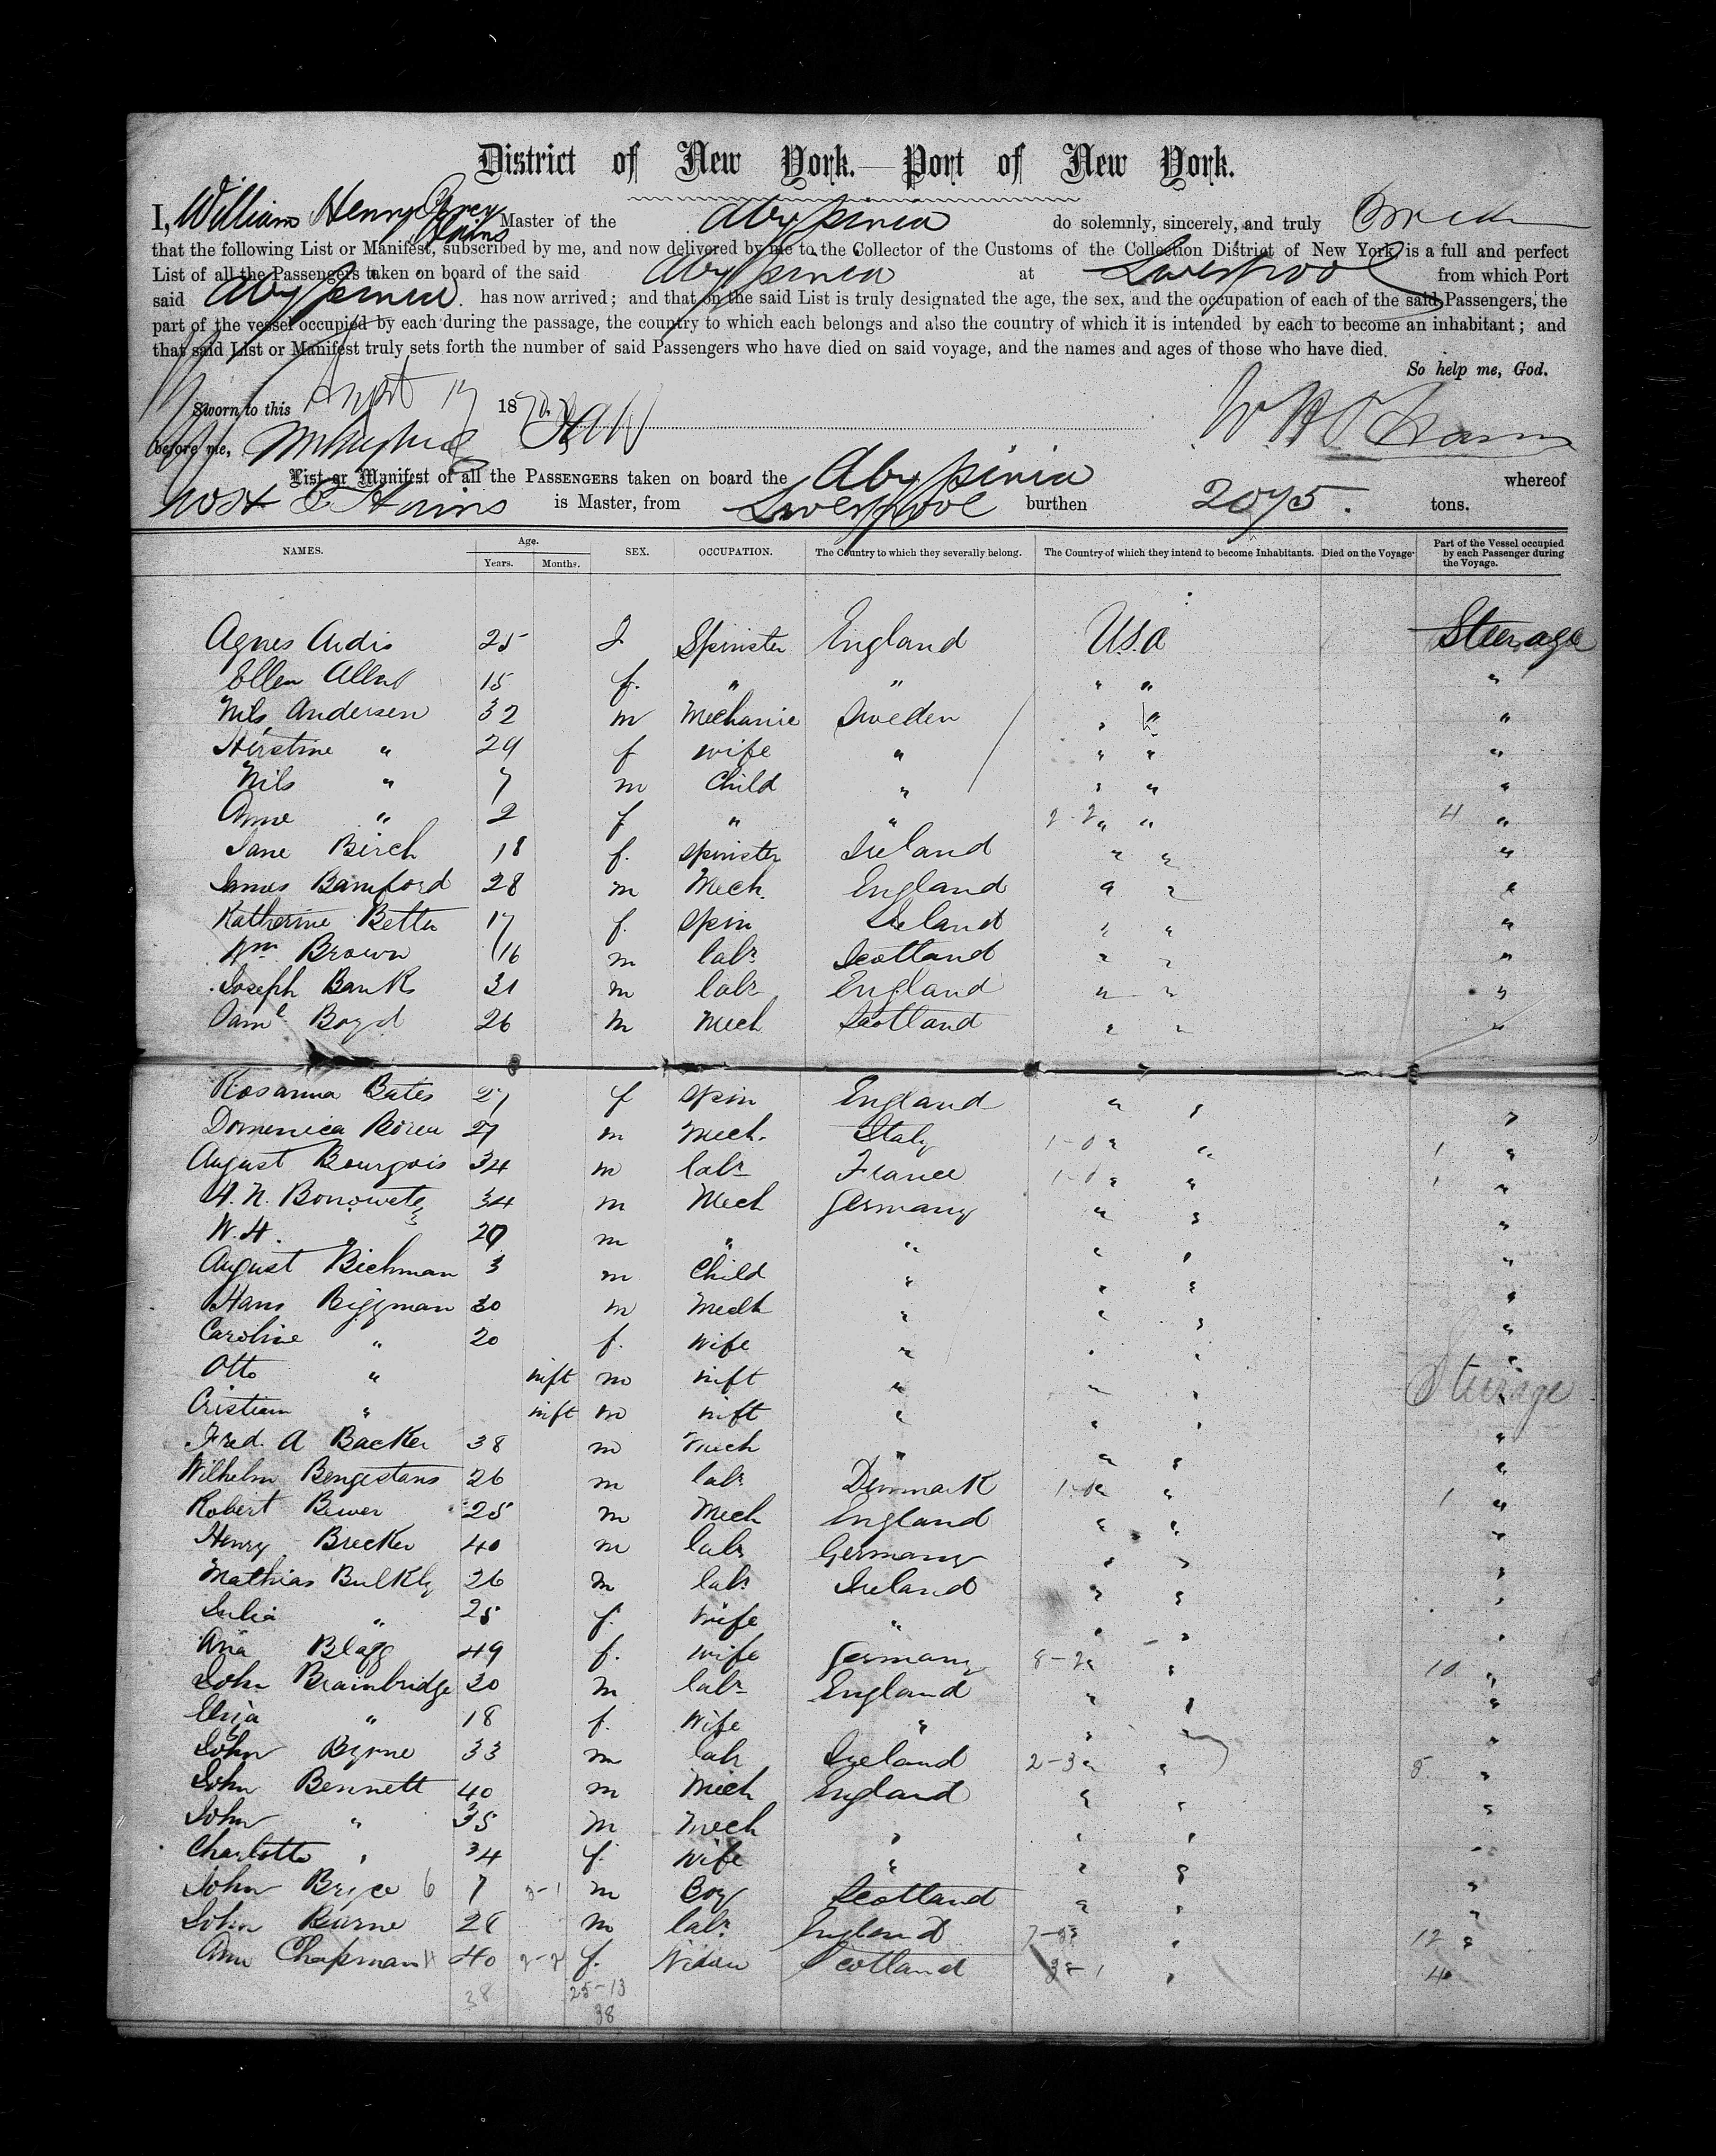 District of New York.—Port of New York.
I, William Henry Master of the Abyssinia do solemnly, sincerely, and truly
that the following List or Manifest, subscribed by me, and now delivered by me to the Collector of the Customs of the Collection District of New York, is a full and perfect
List of all the Passengers taken on board of the said Abyssinia at Liverpool from which Port
said Abyssinia has now arrived; and that on the said List is truly designated the age, the sex, and the occupation of each of the said Passengers, the
part of the vessel occupied by each during the passage, the country to which each belongs and also the country of which it is intended by each to become an inhabitant; and
that said List or Manifest truly sets forth the number of said Passengers who have died on said voyage, and the names and ages of those who have died.
So help me, God.
Sworn to this 17 187
before me,
List or Manifest of all the PASSENGERS taken on board the Abyssinia whereof
is Master, from Liverpool burthen 2075. tons.
NAMES. Age. Years. Months. SEX. OCCUPATION. The Country to which they severally belong. The Country of which they intend to become Inhabitants. Died on the Voyage Part of the Vessel occupied by each Passenger during the Voyage.
Agnes 25 Spinster England U.S.A Steerage
Ellen 15 f. " " " " "
Nils Andersen 32 m Mechanic Sweden " " "
" 29 f wife " " " "
Nils " 7 m Child " " " "
Anne " 2 f " " 2-2 " " 4 "
Jane Birch 18 f. spinster Ireland " " "
James Bamford 28 m Mech. England " " "
Katherine 17 f. spin Ireland " " "
Wm. Brown 16 m labr Scotland " " "
Joseph Banks 31 m labr England " " "
Saml Boyd 26 m Mech Scotland " " "
Rosanna Bates 27 f spin England " " "
Domenica 27 m Mech. Italy 1-0 " " 1 "
August Bourgois 34 m labr France 1-0 " " 1 "
34 m Mech Germany " " "
W. H. " 29 m " " " " "
August Bichman 3 m Child " " " "
Hans Biggman 30 m Mech " " " "
Caroline " 20 f. Wife " " " "
Otto " inft m inft " " " Steerage
Cristian " inft m inft " " " "
Fred. A Backer 38 m mech " " " "
Wilhelm 26 m labr Denmark " " 1 "
Robert 25 m Mech England " " "
Henry Brecker 40 m labr Germany " " "
Mathias Bulkly 26 m labr Ireland " " "
Julia " 25 f. Wife " " " "
Ana Blagg 49 f. wife Germany 8-2 " " 10 "
John Brainbridge 20 m labr England " " "
Eliza " 18 f. Wife " " " "
John Byrne 33 m labr Ireland 2-3 " " 5 "
John Bennett 40 m Mech England " " "
John " 35 m mech " " " "
Charlotte " 34 f. Wife " " " "
John Bryce 6 7 5-1 m Boy Scotland " " "
John m labr England " 12 "
Ann Chapman 40 2-2 f. Widow Scotland " 4
38 25-13
38